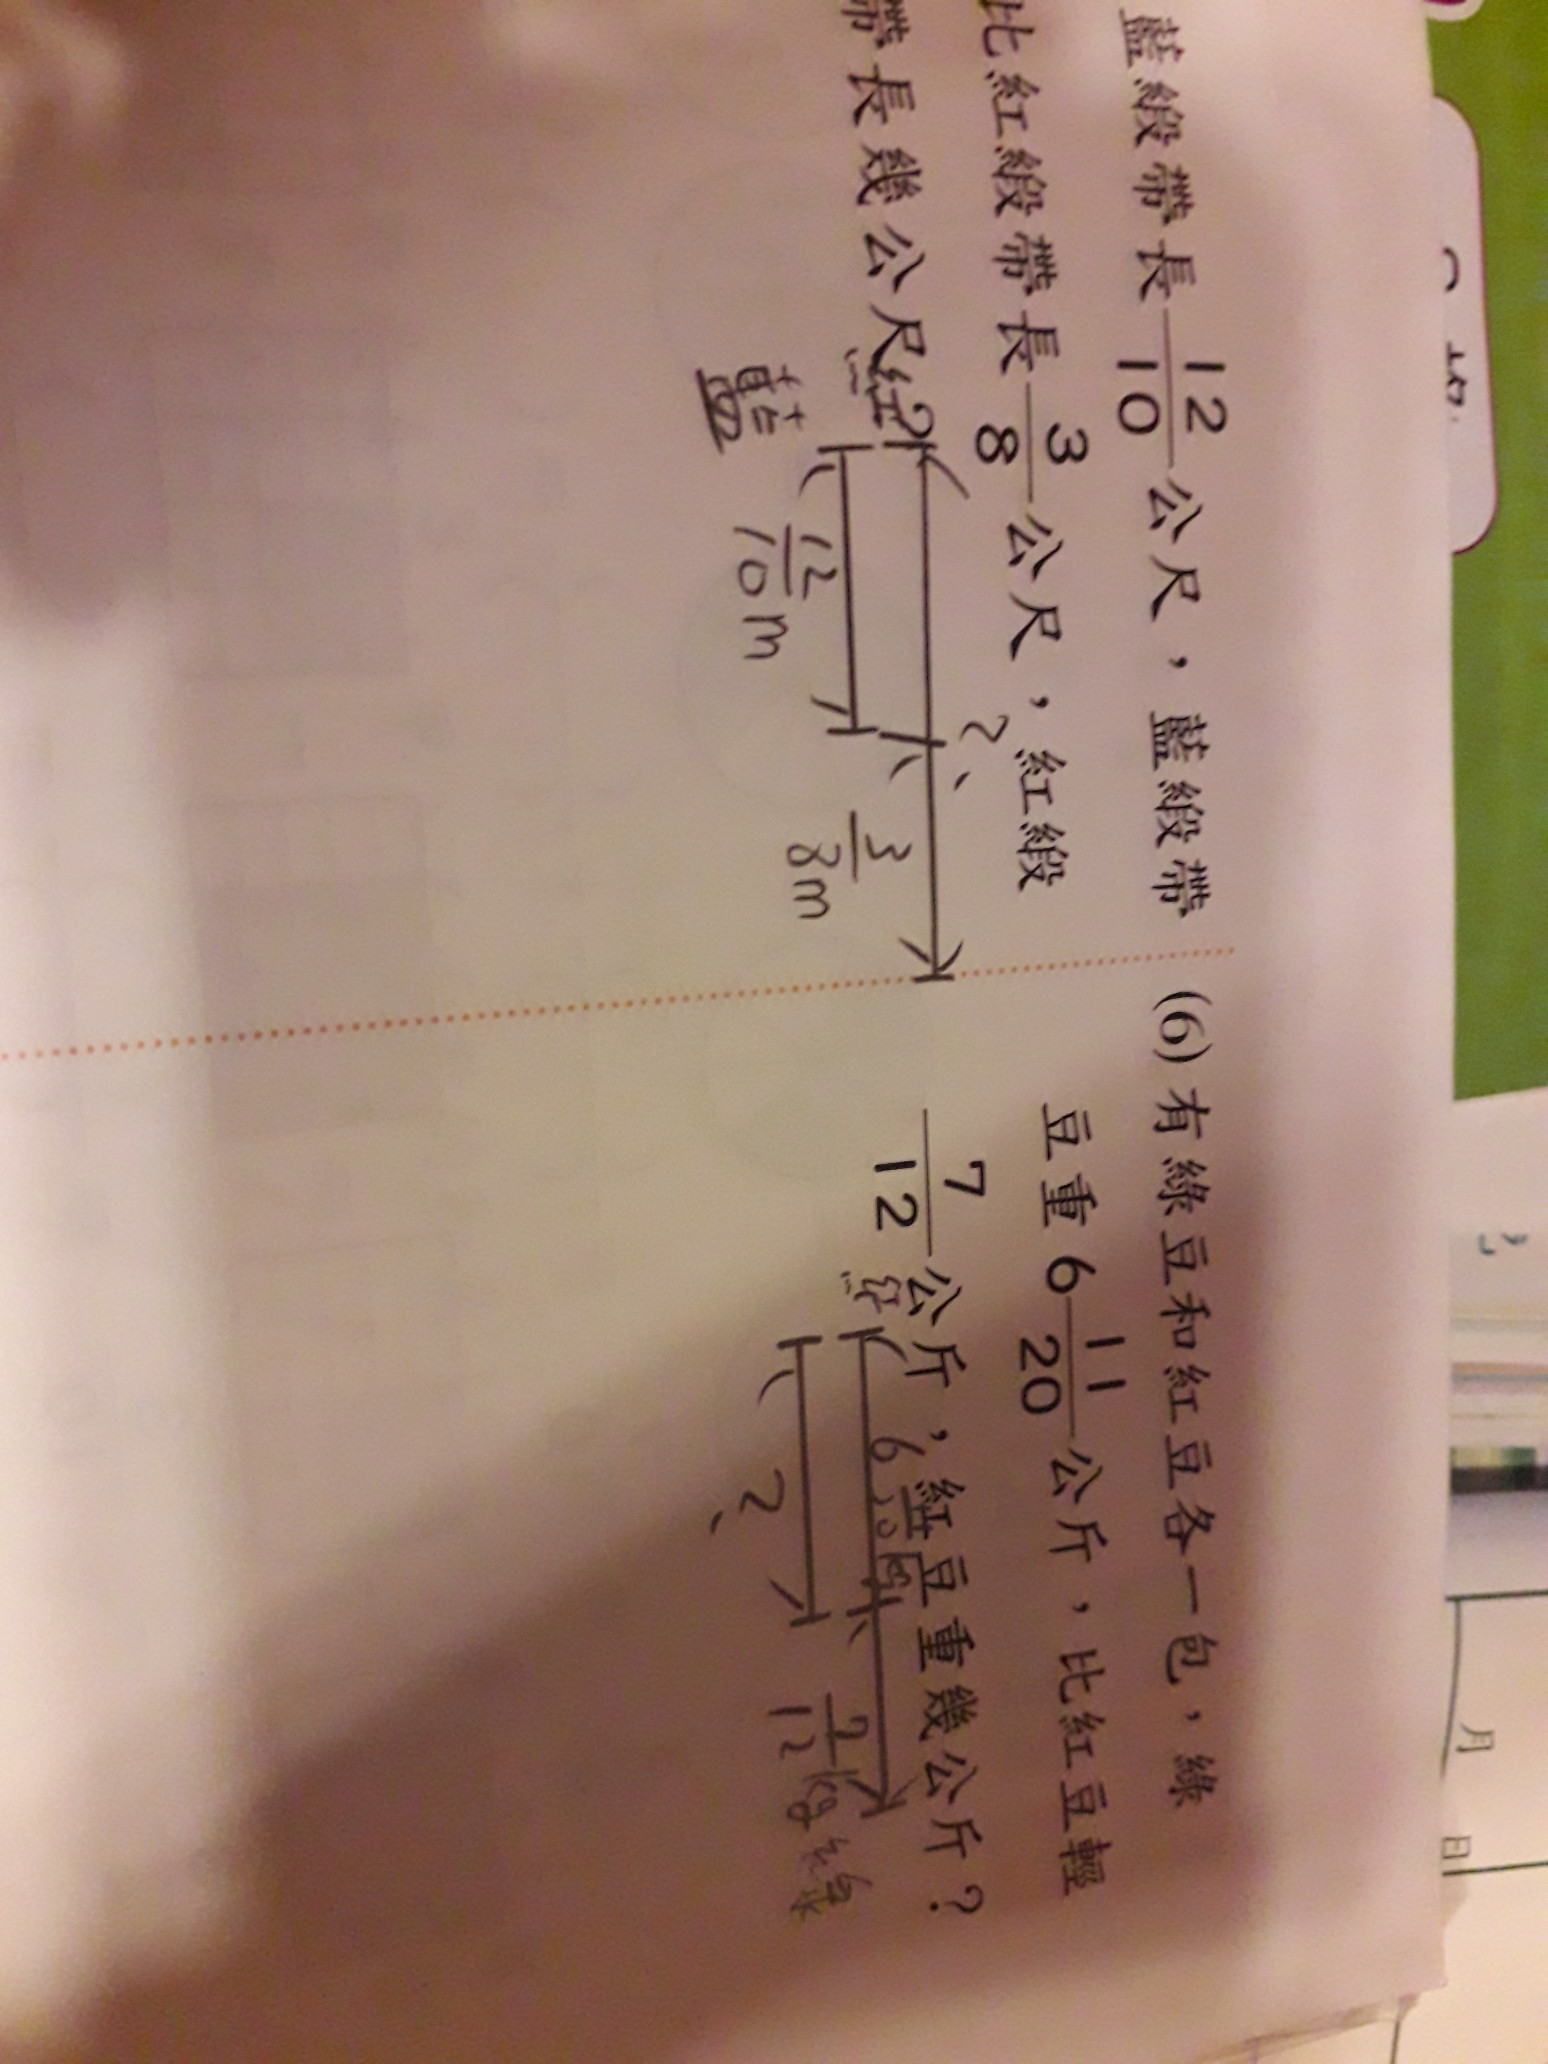 藍緞帶長 12/10 公尺，藍緞帶
比紅緞帶長 3/8 公尺，紅緞
帶長幾公尺？
紅
?
藍
12/10 m
3/8 m
(6) 有綠豆和紅豆各一包，綠
豆重 6 11/20 公斤，比紅豆輕
7/12 公斤，紅豆重幾公斤？
紅
?
7/12 kg
綠
月
日